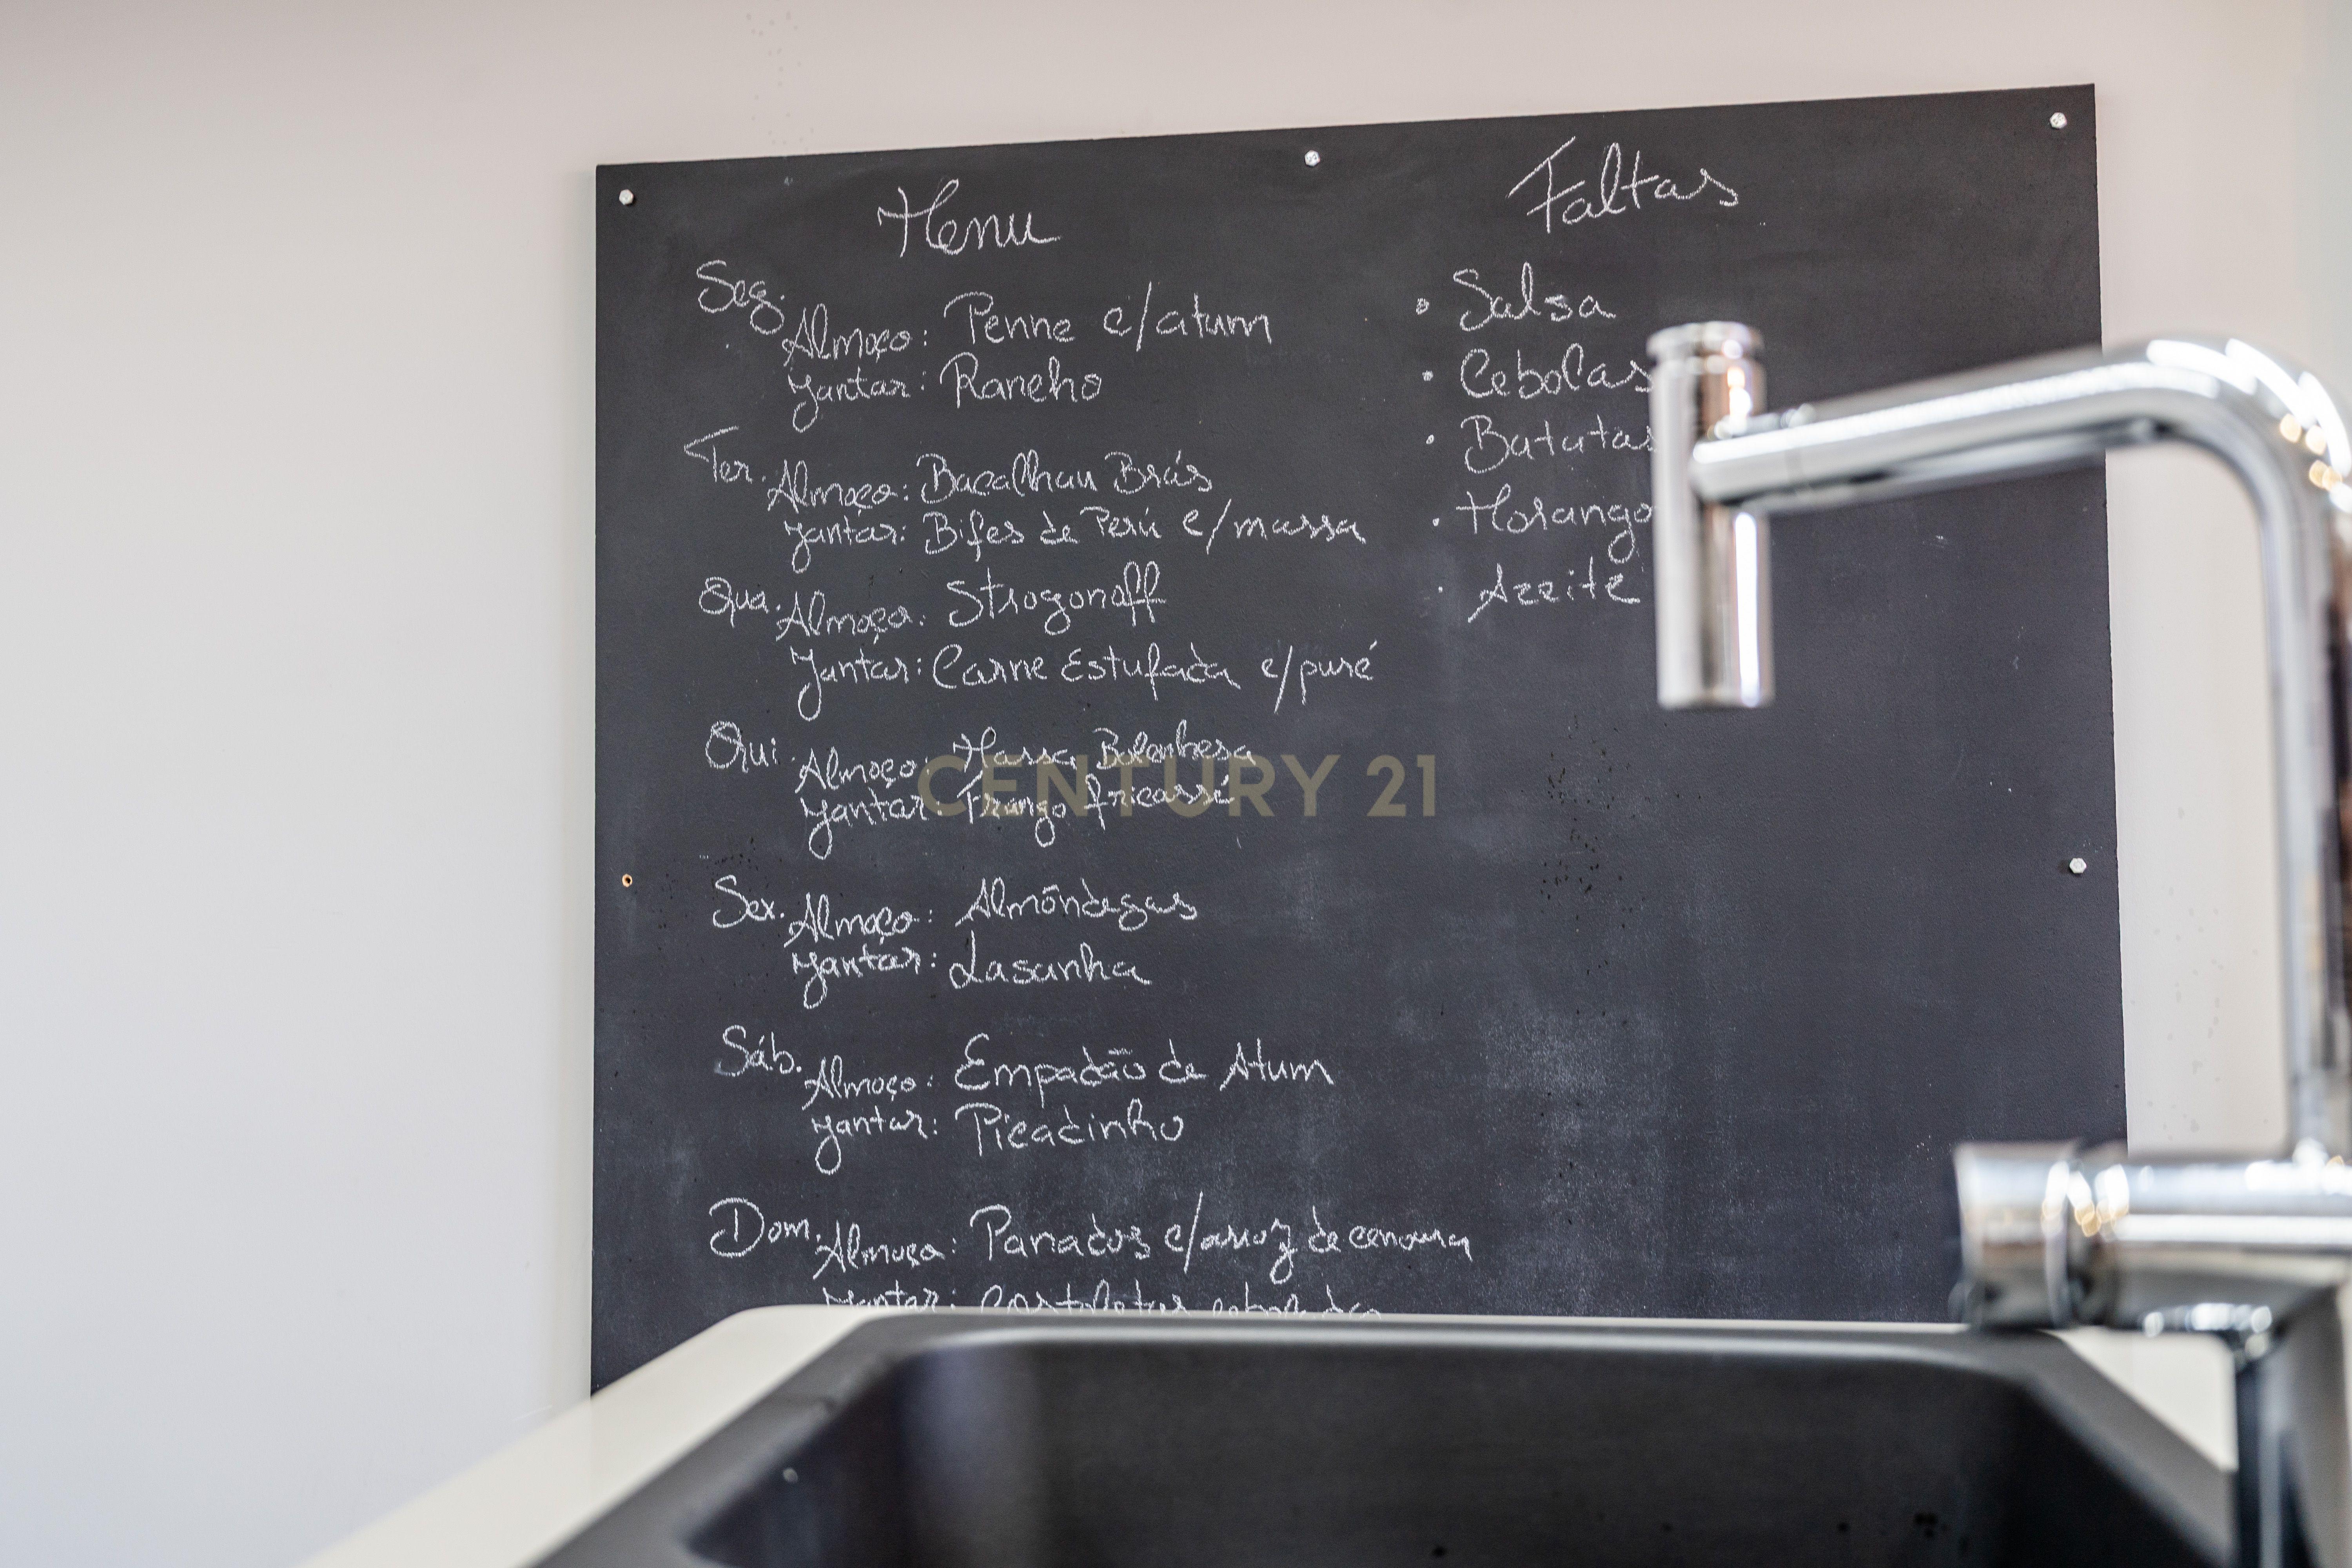 Menu
Seg.
Almoço: Penne c/atum
Jantar: Rancho
Ter.
Almoço: Bacalhau Brás
Jantar: Bifes de Perú c/massa
Qua.
Almoço: Strogonoff
Jantar: Carne Estufada c/puré
Qui.
Almoço: Massa Bolonhesa
Jantar: Frango fricassé
Sex.
Almoço: Almôndegas
Jantar: Lasanha
Sáb.
Almoço: Empadão de Atum
Jantar: Picadinho
Dom.
Almoço: Panados c/arroz de cenoura
Jantar: Costeletas
Faltas
• Salsa
• Cebolas
• Batatas
• Morango
• Azeite
CENTURY 21